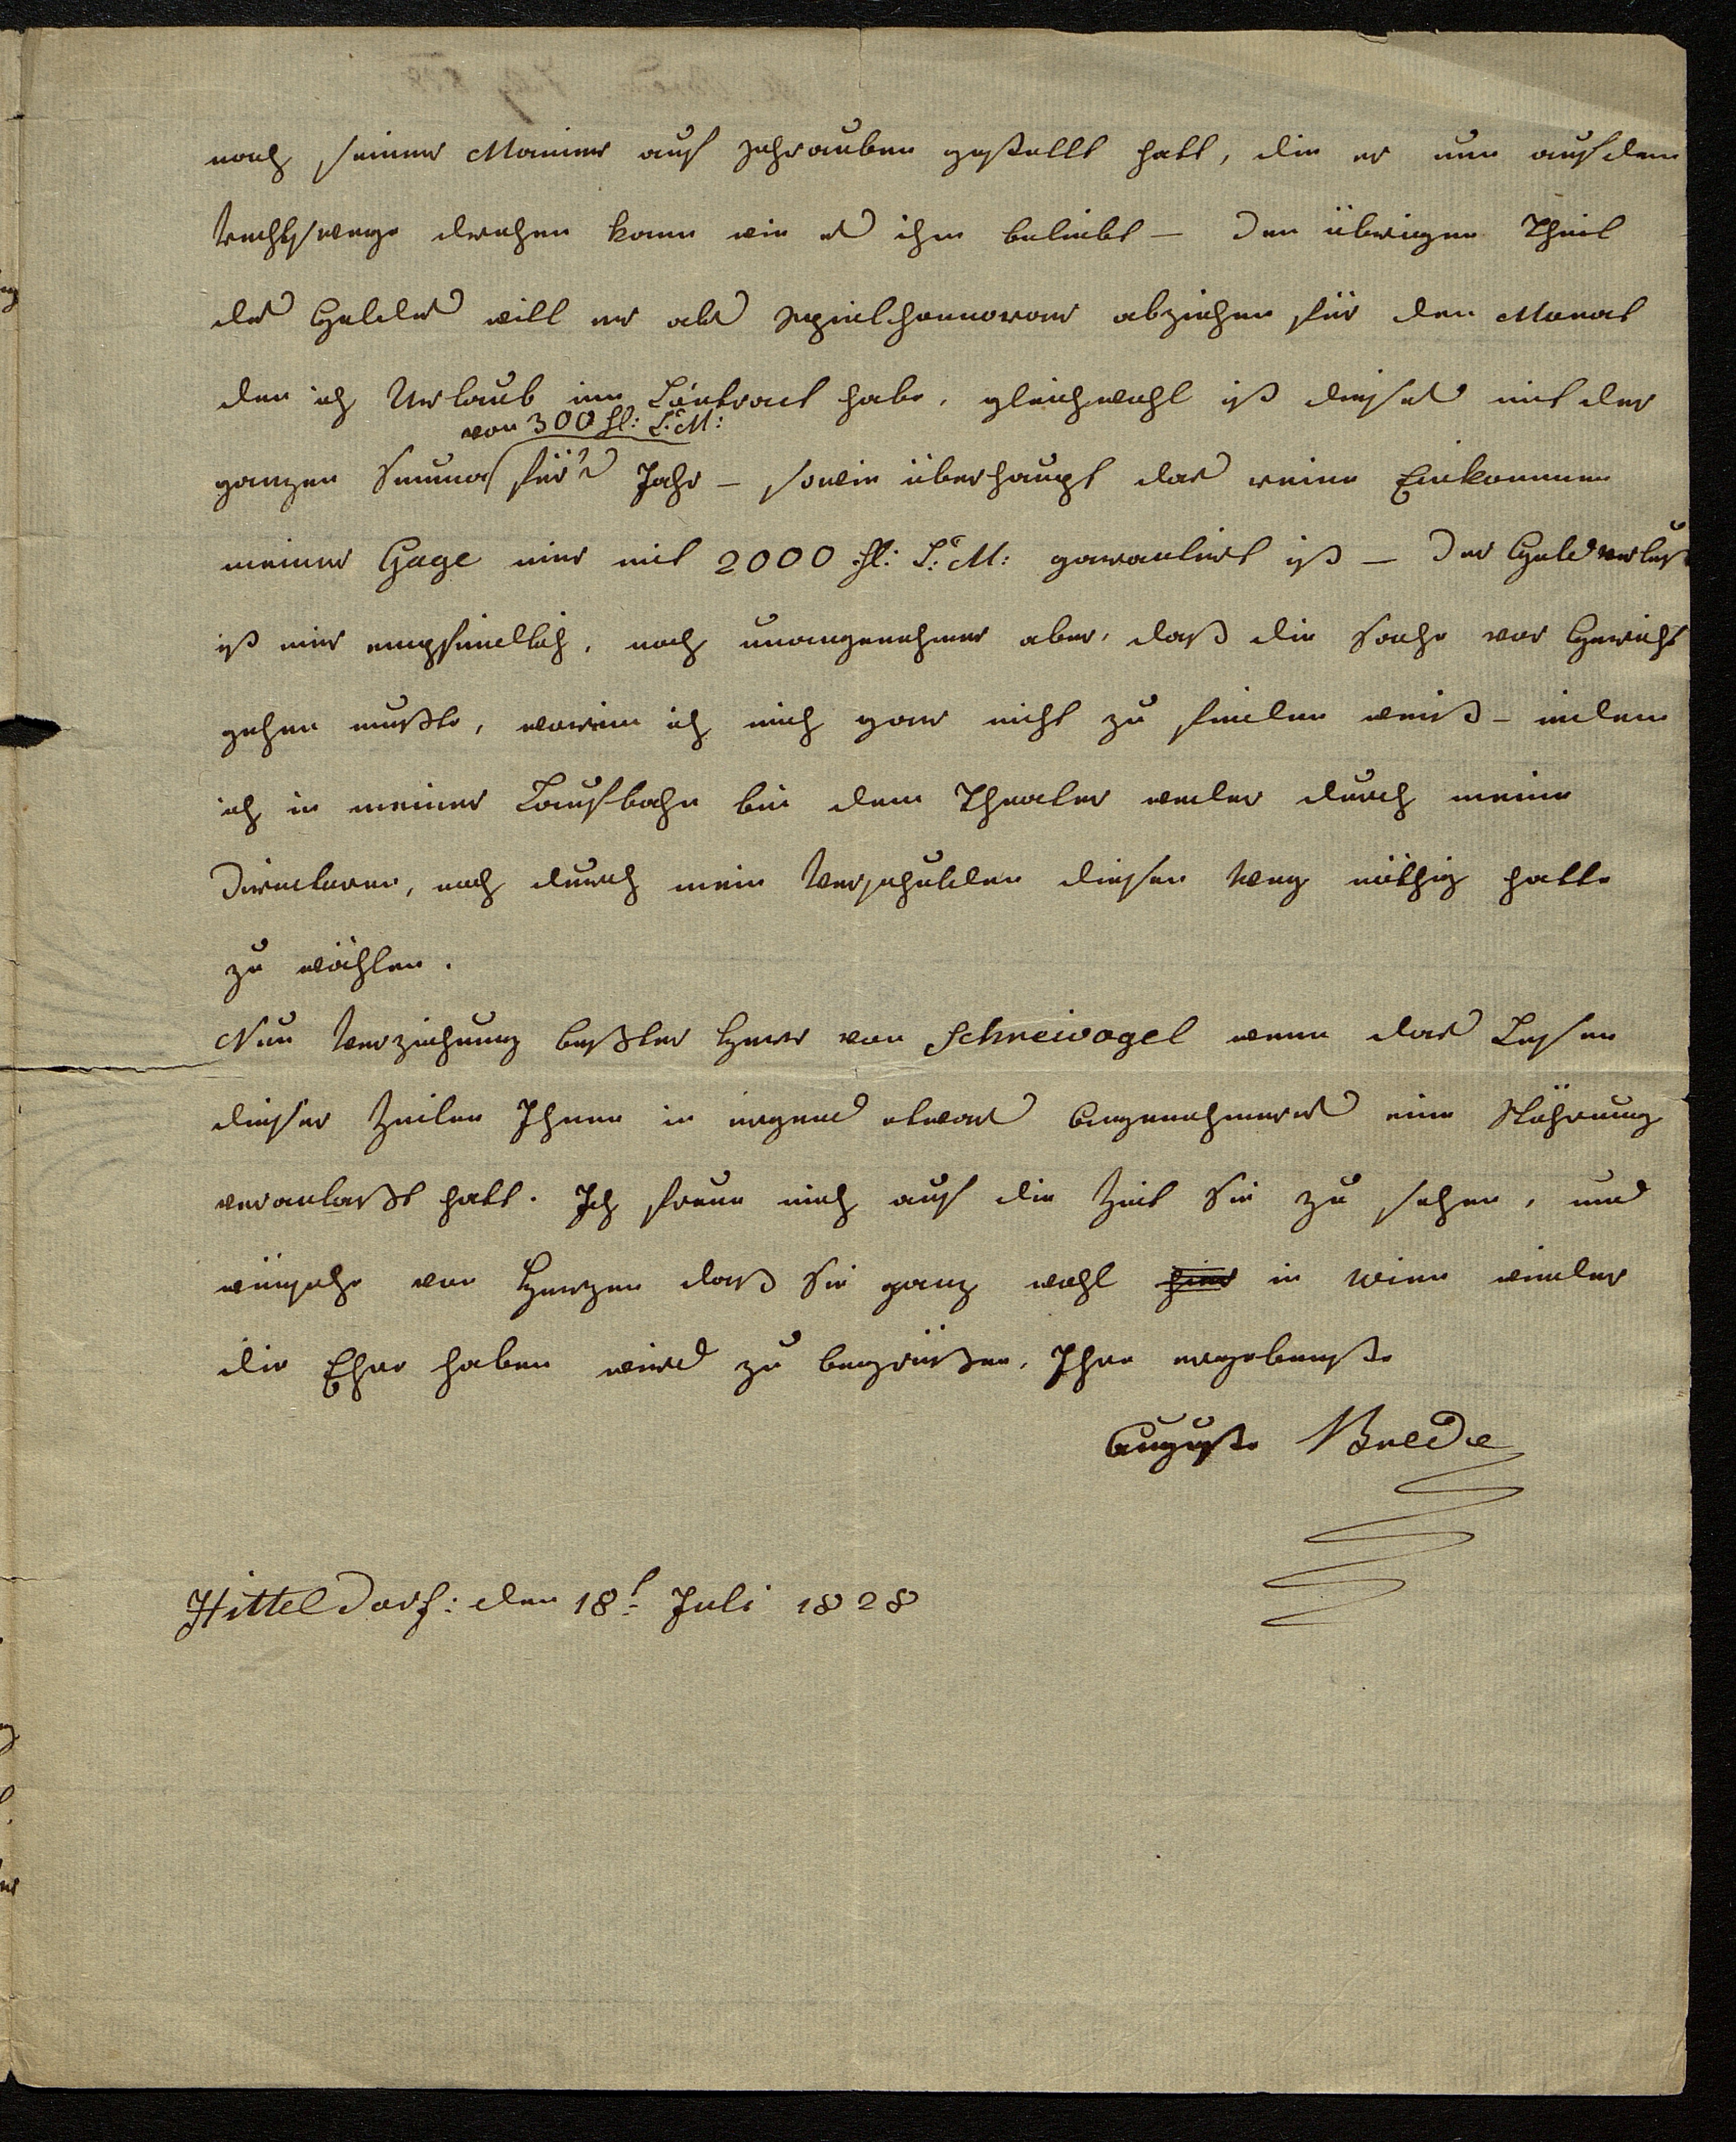 nach seiner Manier auf Schrauben gestellt hatt, die er nun auf dem
Rechtswege drehen kann wie es ihm beliebt – Den übrigen Theil
des Geldes will er als Spielhonnorar abziehen für den Monat
den ich Urlaub im Contract habe, gleichwohl ist dieses mit der
von 300 fl: C: M:
ganzen Summa für's Jahr – sowie überhaupt das reine Einkommen
meiner Gage mir mit 2000 fl: C: M: garantirt ist – Der Geldverlust
ist mir empfindlich, noch unangenehmer aber, daß die Sache vor Gericht
gehen mußte, worein ich mich gar nicht zu finden weiß – indem
ich in meiner Laufbahn bei dem Theater weder durch meine
Directoren, noch durch mein Verschulden diesen Weg nöthig hatte
zu wählen.
Nun Verziehung beßter Herr von Schreivogel wenn das Lesen
dieser Zeilen Ihnen in irgend etwas Angenehmeres eine Stöhrung
veranlaßt hatt. Ich freue mich auf die Zeit Sie zu sehen, und
wünsche von Herzen daß Sie ganz wohl hier in Wien wieder
die Ehre haben wird zu begrüßen, Ihre ergebenste
Auguste Brede
Hitteldorf: den 18t Juli 1828